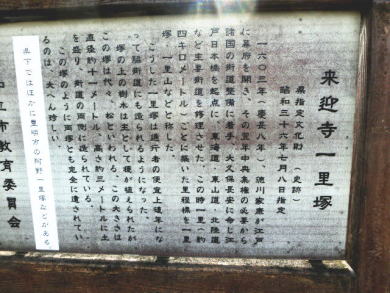 来迎寺一里塚
県指定文化財(史跡)
昭和三十六年七月八日指定
一六〇三年(慶長八年)、徳川家康が江戸
に幕府を開き、その翌年中央集権の必要から
諸国の街道整備に着手、大久保長安に命じ江
戸日本橋を起点に、東海道、東山道、北陸道
など主要街道を修理させた。この時一里(約
四キロメートル)ごとに築いた里程標を一里
塚・一里山などと称した。
こうした一里塚は通行者の便宜上後年にな
って脇街道にも造られるようになった。
塚の上の樹木は主として榎が植えられたが
この塚は代々松といわれる。この大きさは
直径約十一メートル、高さ約三メートルに土
を盛り、街道の両側に造られている。
この塚のように両塚とも完全に遺されてい
るのは、大へん珍しい
県下ではほかに豊明市の阿野一里塚などがある
知立市教育委員会